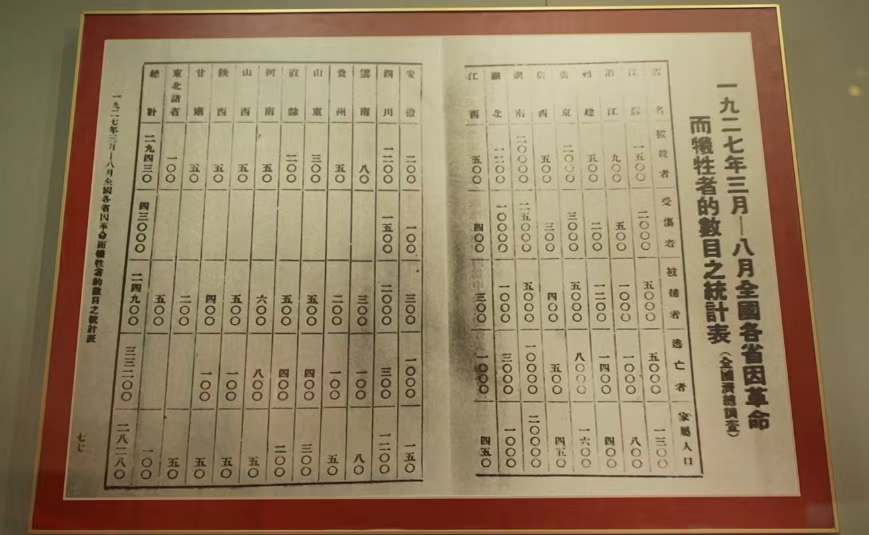 一九二七年三月—八月全國各省因革命
而犧牲者的數目之統計表(全國濟總調查)
省名 被殺者 受傷者 被捕者 逃亡者 家屬人口
江蘇 一五〇〇 二〇〇〇 五〇〇〇 五〇〇〇 一三〇〇
浙江 九〇〇 五〇〇 一〇〇〇 一〇〇〇 八〇〇
福建 五〇〇 二〇〇 一二〇〇 一四〇〇 四〇〇
廣東 二〇〇〇 三〇〇〇 五〇〇〇 八〇〇〇 一六〇〇
廣西 五〇〇 三〇〇 四〇〇 五〇〇 四五〇
湖南 二〇〇〇〇 二五〇〇〇 五〇〇〇 一〇〇〇〇 二〇〇〇〇
湖北 一二〇〇 一〇〇〇〇 一〇〇〇 三〇〇〇 一〇〇〇
江西 五〇〇 四〇〇 三〇〇 一〇〇〇 四五〇
安徽 二〇〇 一〇〇 三〇〇 一〇〇〇 一五〇
四川 一二〇〇 一五〇〇 二〇〇〇 三〇〇 一二〇〇
雲南 八〇 三〇〇 一〇〇 八〇
貴州 五〇 二〇〇 一〇〇 五〇
山東 三〇〇 五〇〇 四〇〇 三〇〇
直隸 二〇〇 五〇〇 四〇〇 二〇〇
河南 五〇 六〇〇 八〇〇 五〇
山西 五〇 五〇〇 一〇〇 五〇
陝西 五〇 四〇〇 一〇〇 五〇
甘肅 五〇 二〇〇 五〇
東北諸省 一〇〇 五〇〇 一〇〇
總計 二九四三〇 四三〇〇〇 二四九〇〇 三三二〇〇 二八二八〇
一九二七年三月—八月全國各省因革命而犧牲者的數目之統計表
七七